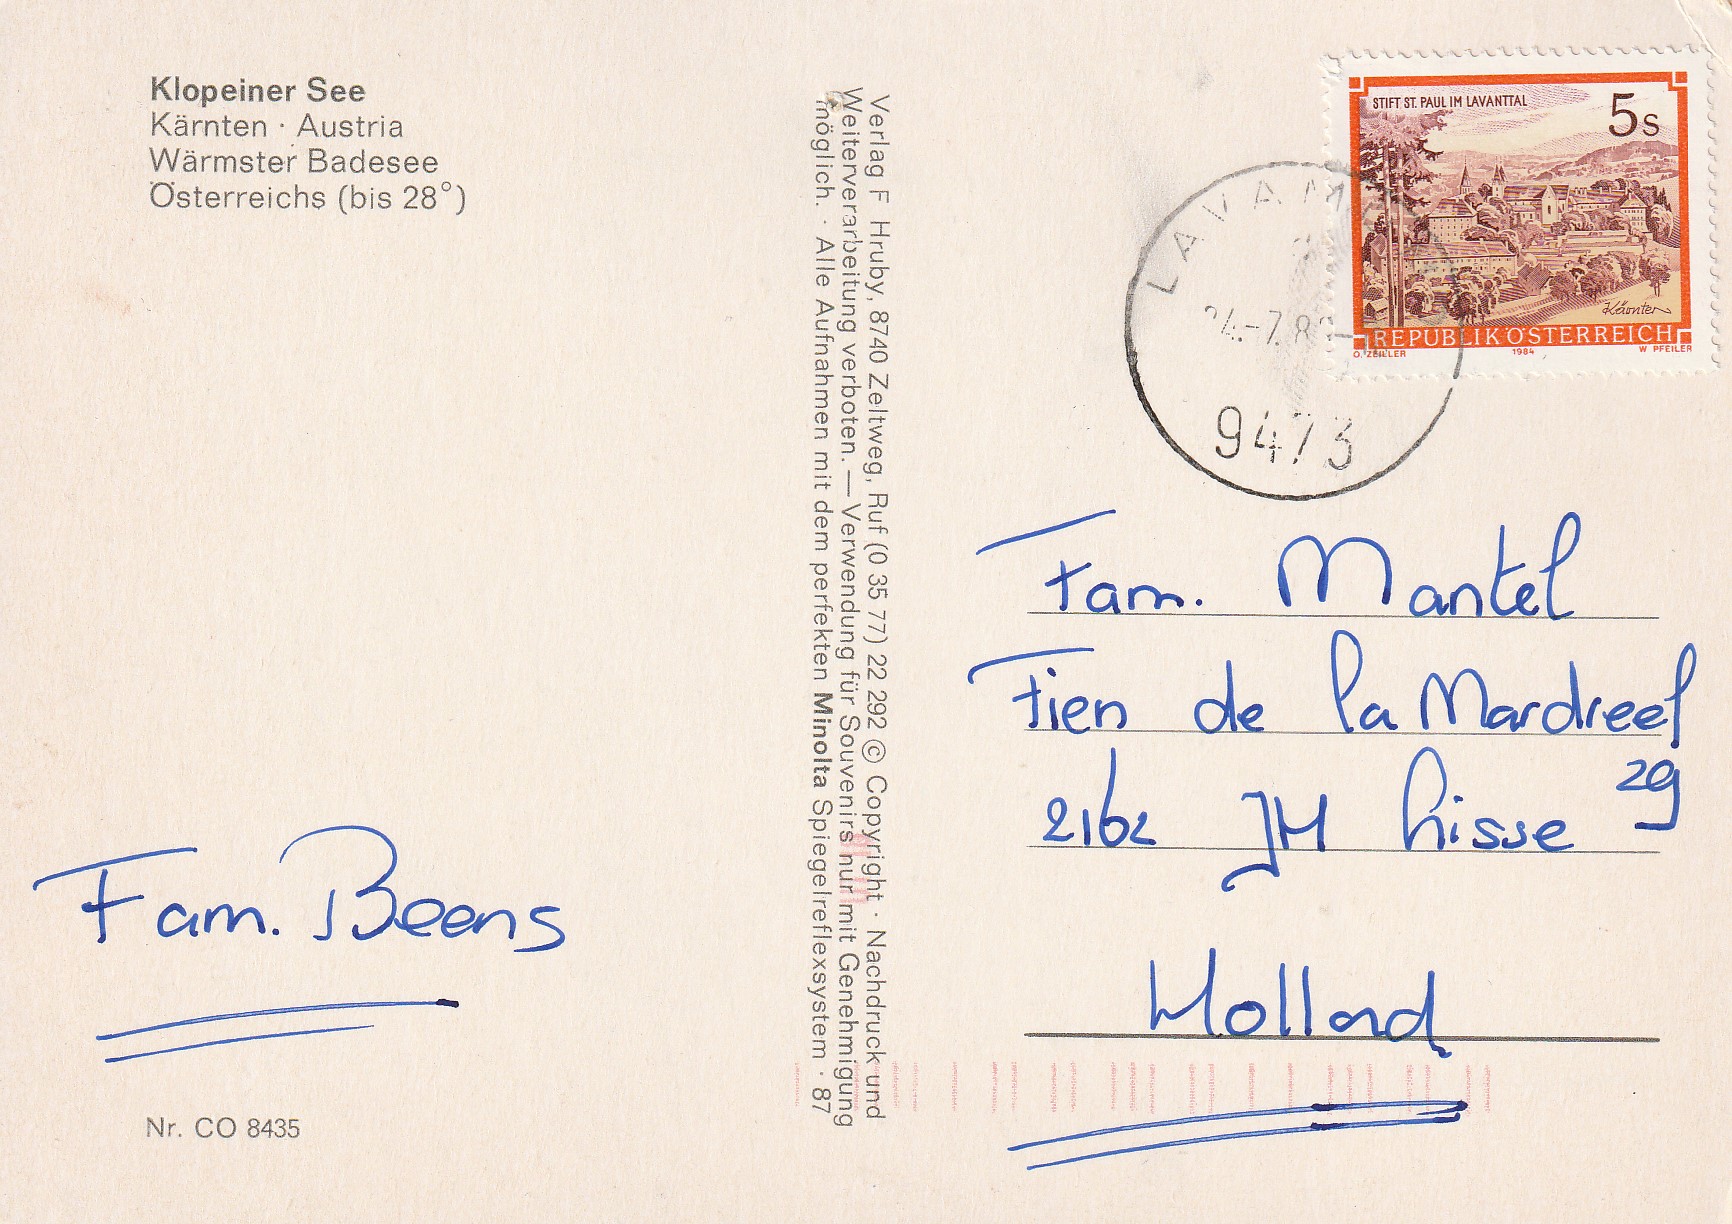 Klopeiner See
Kärnten · Austria
Wärmster Badesee
Österreichs (bis 28°)
Verlag F. Hruby, 8740 Zeltweg, Ruf (0 35 77) 22 292 © Copyright · Nachdruck und
Weiterverarbeitung verboten. — Verwendung für Souvenirs nur mit Genehmigung
möglich. · Alle Aufnahmen mit dem perfekten Minolta Spiegelreflexsystem · 87
STIFT ST. PAUL IM LAVANTTAL
5s
Kärnten
REPUBLIK ÖSTERREICH
O. ZEILLER 1984 W PFEILER
LAVAM
9473
Fam. Mantel
Fien de la Mardreel
29
2162 JH Lisse
Holland
Fam. Beens
Nr. CO 8435